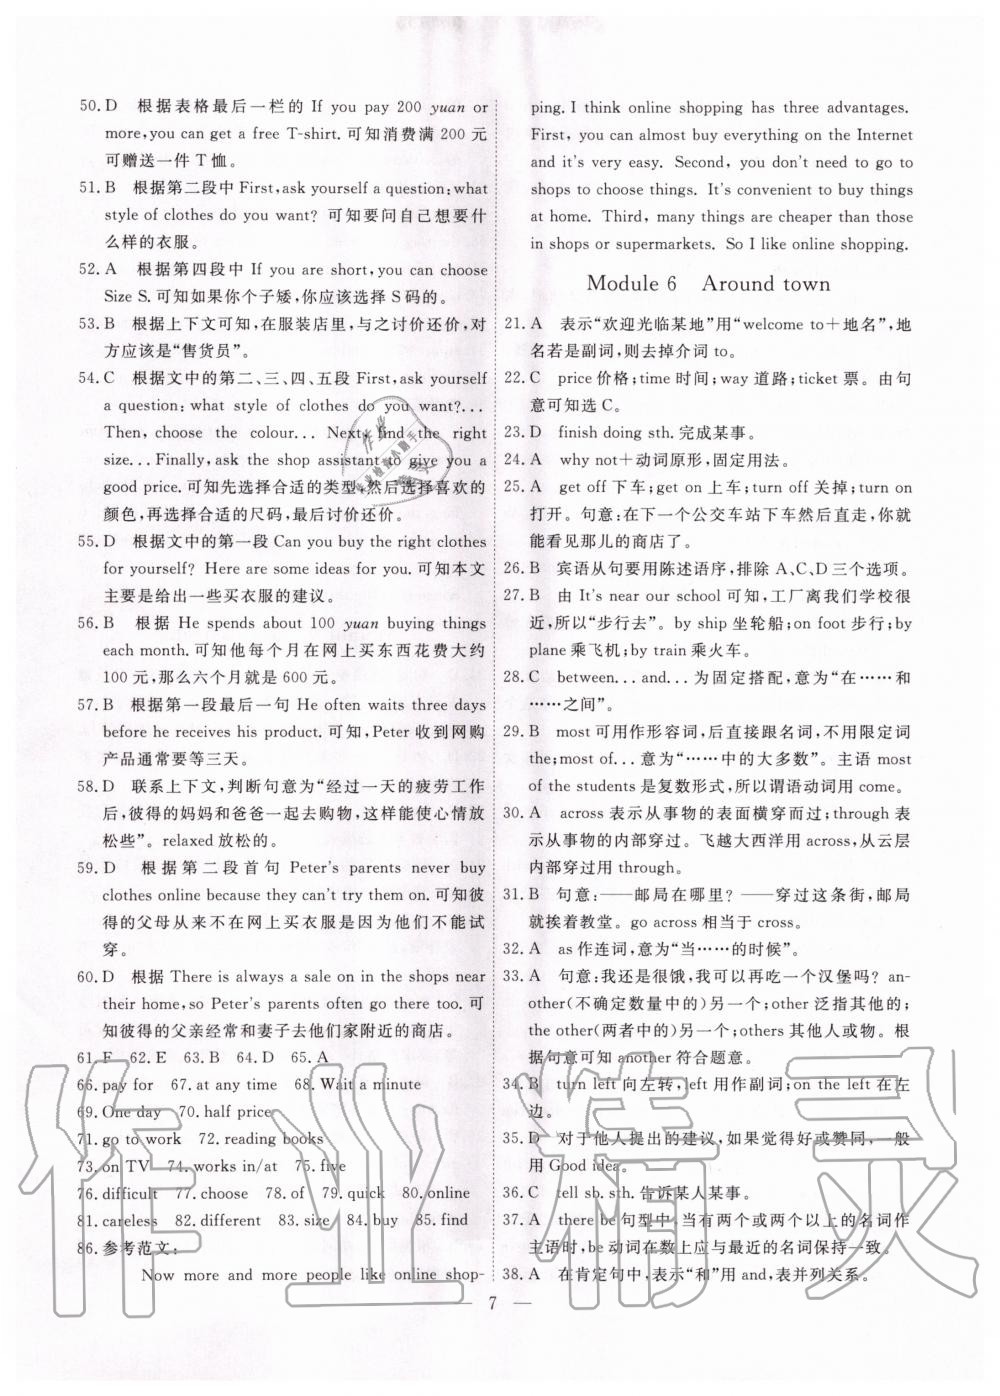 50. D 根据表格最后一栏的 If you pay 200 yuan or
more,you can get a free T-shirt. 可知消费满 200 元
可赠送一件 T 恤。
51. B 根据第二段中 First,ask yourself a question:what
style of clothes do you want? 可知要问自己想要什
么样的衣服。
52. A 根据第四段中 If you are short,you can choose
Size S. 可知如果你个子矮,你应该选择 S 码的。
53. B 根据上下文可知,在服装店里,与之讨价还价,对
方应该是“售货员”。
54. C 根据文中的第二、三、四、五段 First,ask yourself
a question: what style of clothes do you want?...
Then, choose the colour... Next, find the right
size... Finally, ask the shop assistant to give you a
good price. 可知先选择合适的类型,然后选择喜欢的
颜色,再选择合适的尺码,最后讨价还价。
55. D 根据文中的第一段 Can you buy the right clothes
for yourself? Here are some ideas for you. 可知本文
主要是给出一些买衣服的建议。
56. B 根据 He spends about 100 yuan buying things
each month. 可知他每个月在网上买东西花费大约
100 元,那么六个月就是 600 元。
57. B 根据第一段最后一句 He often waits three days
before he receives his product. 可知, Peter 收到网购
产品通常要等三天。
58. D 联系上下文,判断句意为“经过一天的疲劳工作
后,彼得的妈妈和爸爸一起去购物,这样能使心情放
松些”。relaxed 放松的。
59. D 根据第二段首句 Peter's parents never buy
clothes online because they can't try them on. 可知彼
得的父母从来不在网上买衣服是因为他们不能试
穿。
60. D 根据 There is always a sale on in the shops near
their home,so Peter's parents often go there too. 可
知彼得的父亲经常和妻子去他们家附近的商店。
61. F 62. E 63. B 64. D 65. A
66. pay for 67. at any time 68. Wait a minute
69. One day 70. half price
71. go to work 72. reading books
73. on TV 74. works in/at 75. five
76. difficult 77. choose 78. of 79. quick 80. online
81. careless 82. different 83. size 84. buy 85. find
86. 参考范文:
Now more and more people like online shop-
ping. I think online shopping has three advantages.
First, you can almost buy everything on the Internet
and it's very easy. Second, you don't need to go to
shops to choose things. It's convenient to buy things
at home. Third, many things are cheaper than those
in shops or supermarkets. So I like online shopping.
Module 6 Around town
21. A 表示“欢迎光临某地”用“welcome to+地名”,地
名若是副词,则去掉介词 to。
22. C price 价格;time 时间;way 道路;ticket 票。由句
意可知选 C。
23. D finish doing sth. 完成某事。
24. A why not+动词原形,固定用法。
25. A get off 下车;get on 上车;turn off 关掉;turn on
打开。句意:在下一个公交车站下车然后直走,你就
能看见那儿的商店了。
26. B 宾语从句要用陈述语序,排除 A、C、D 三个选项。
27. B 由 It's near our school 可知,工厂离我们学校很
近,所以“步行去”。by ship 坐轮船;on foot 步行;by
plane 乘飞机;by train 乘火车。
28. C between... and... 为固定搭配,意为“在……和
……之间”。
29. B most 可用作形容词,后直接跟名词,不用限定词
the;most of... 意为“……中的大多数”。主语 most
of the students 是复数形式,所以谓语动词用 come。
30. A across 表示从事物的表面横穿而过;through 表
示从事物的内部穿过。飞越大西洋用 across,从云层
内部穿过用 through。
31. B 句意:——邮局在哪里? ——穿过这条街,邮局
就挨着教堂。go across 相当于 cross。
32. A as 作连词,意为“当……的时候”。
33. A 句意:我还是很饿,我可以再吃一个汉堡吗? an-
other(不确定数量中的)另一个;other 泛指其他的;
the other(两者中的)另一个;others 其他人或物。根
据句意可知 another 符合题意。
34. B turn left 向左转,left 用作副词;on the left 在左
边。
35. D 对于他人提出的建议,如果觉得好或赞同,一般
用 Good idea。
36. C tell sb. sth. 告诉某人某事。
37. A there be 句型中,当有两个或两个以上的名词作
主语时,be 动词在数上应与最近的名词保持一致。
38. A 在肯定句中,表示“和”用 and,表并列关系。
7
作业精灵